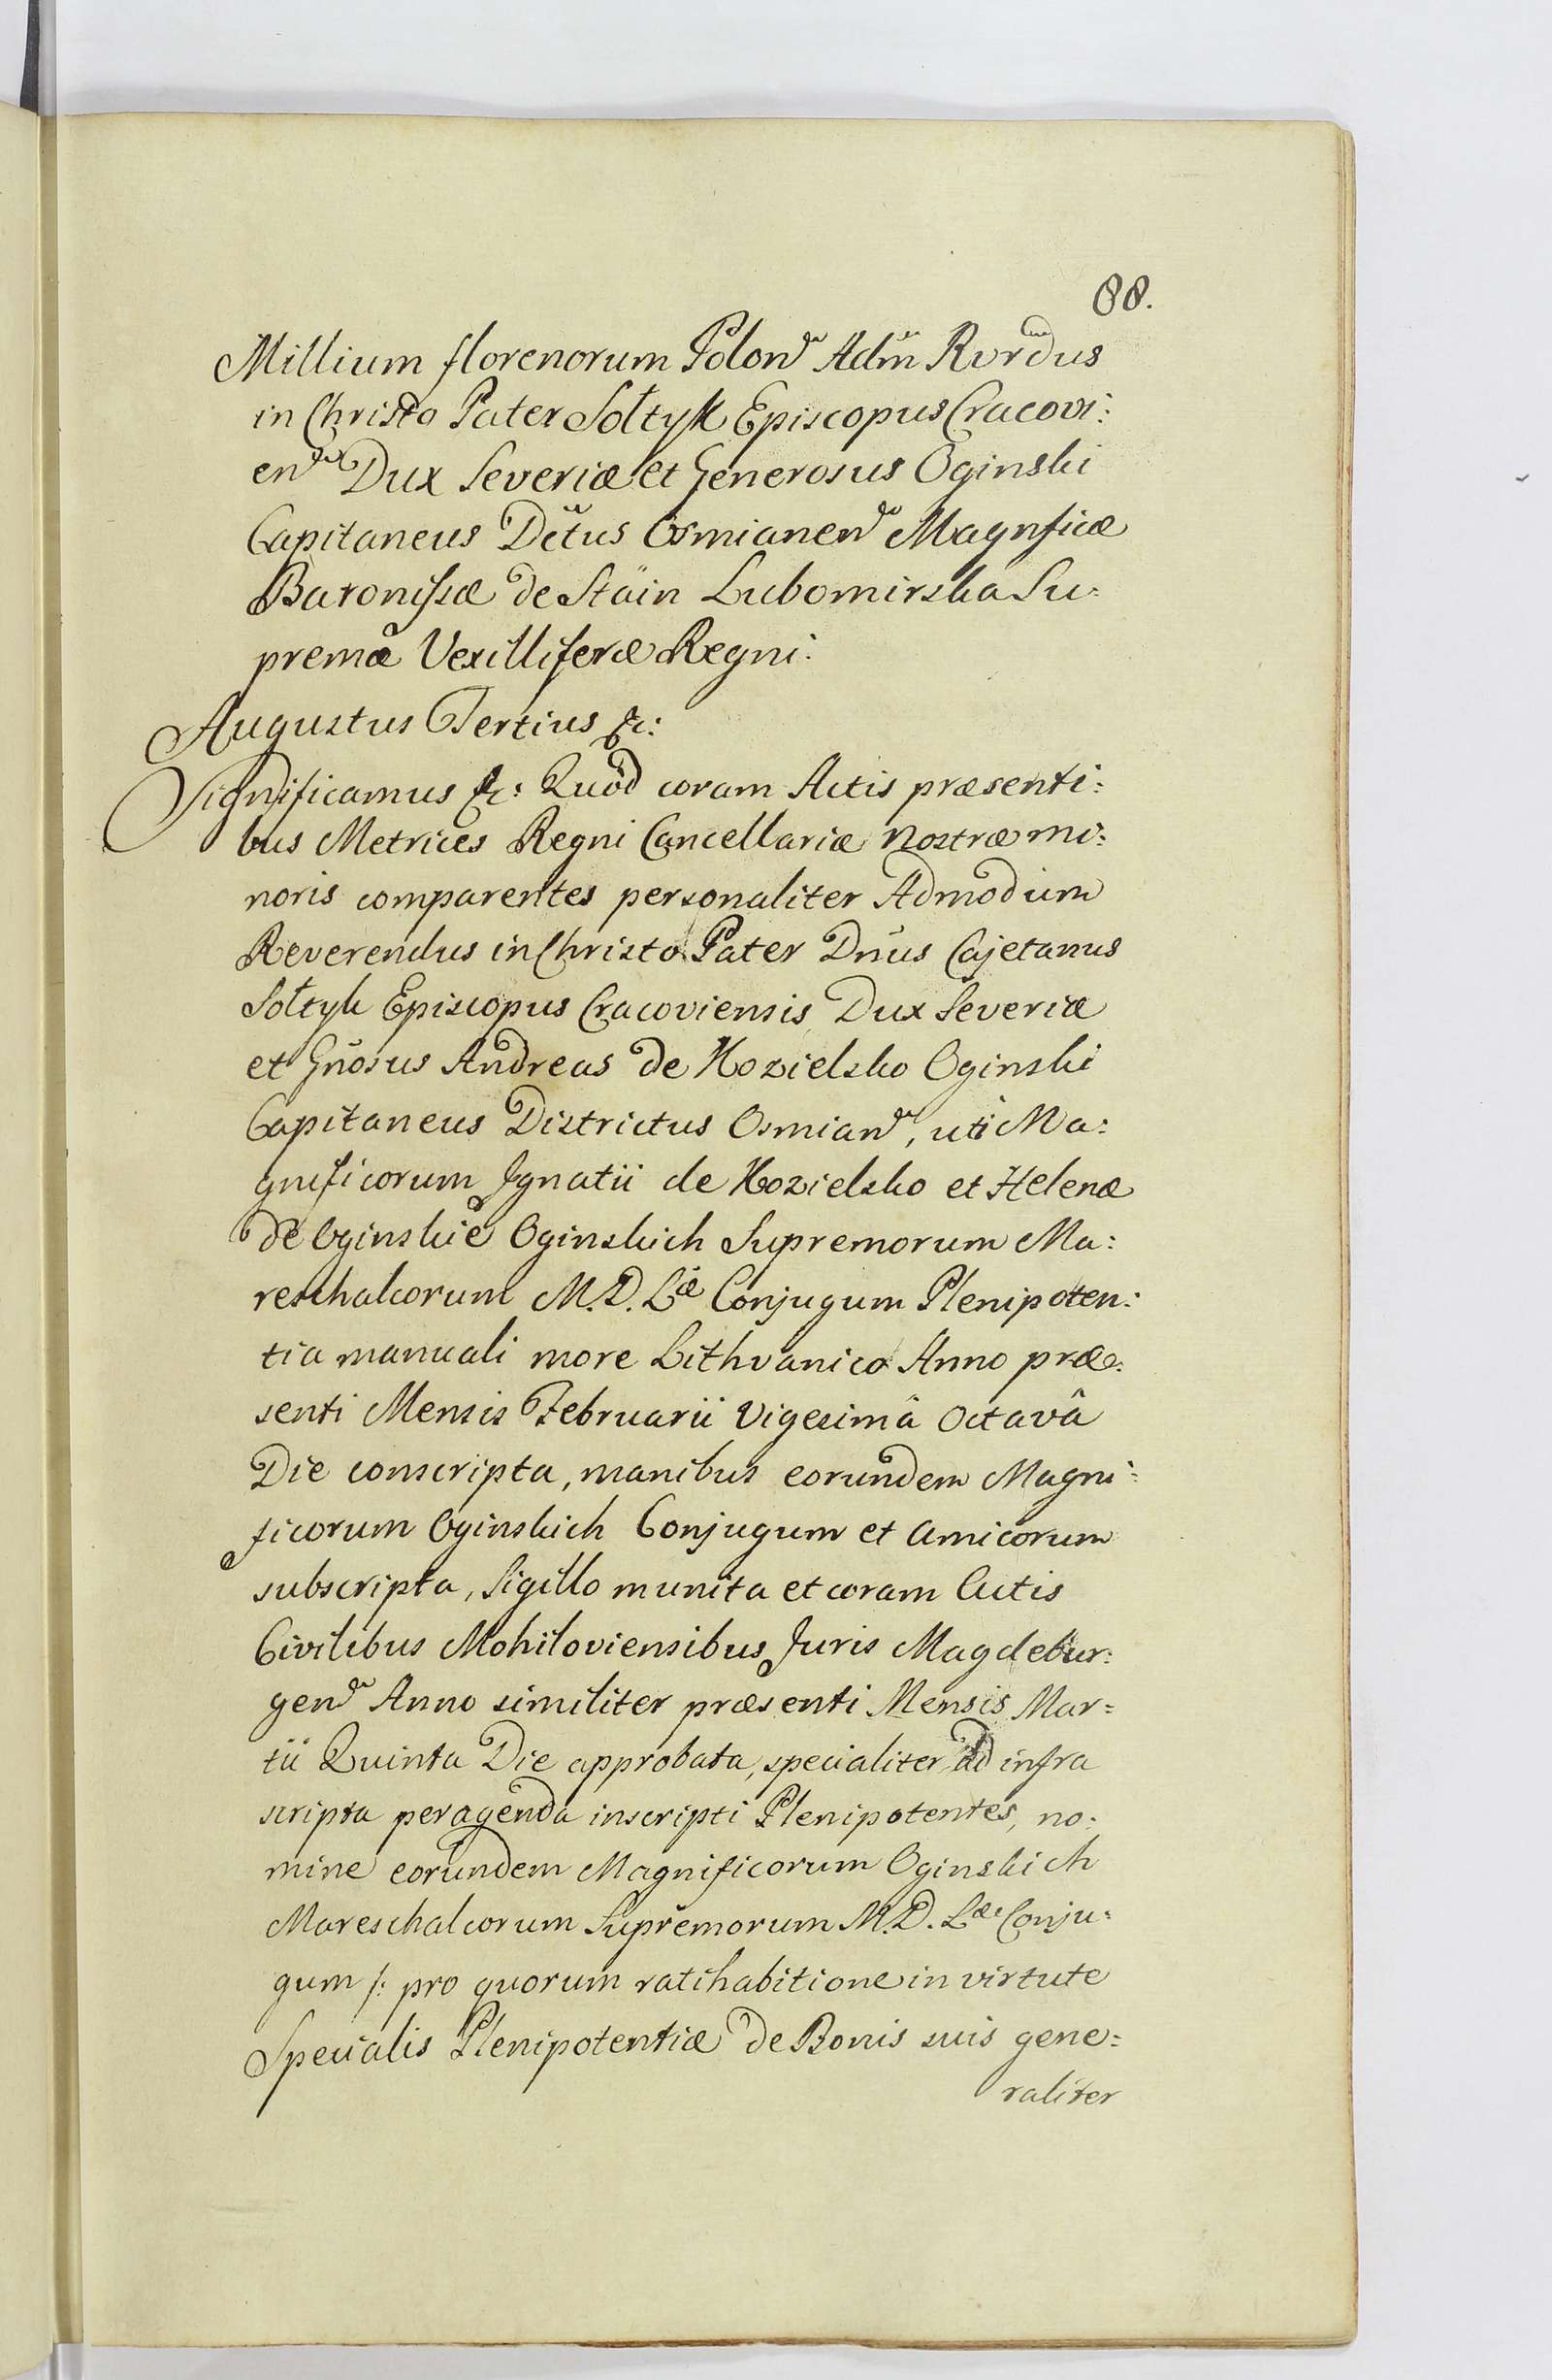 88.
Millium florenorum Polon̄ Adm̃ Rvrd̃us
in Christo Pater Sołtyk Episcopus Cracovi:
en̄ Dux Severiæ et Generosus Oginski
Capitaneus Dĩtus Osmianen̄ Magnficæ
Baronissæ de Stäin Lubomirska Su:
premæ Vexilliferæ Regni:
Augustus Tertius &c:
Significamus &c: Quod coram Actis præsenti:
bus Metrices Regni Cancellariæ nostræ mi:
noris comparentes personaliter Admodum
Reverendus in Christo Pater Dñus Cajetanus
Sołtyk Episcopus Cracoviensis Dux Severiæ
et Gñosus Andreas de Kozielsko Oginski
Capitaneus Districtus Osmian̄, uti Ma:
gnificorum Ignatii de Kozielsko et Helenæ
de Oginskie Oginskich Supremorum Ma:
reschalcorum M.D.Læ Conjugum Plenipoten:
tia manuali more Lithvanico Anno præ:
senti Mensis Februarii Vigesimâ Octavâ
Die conscripta, manibus eorundem Magni:
ficorum Oginskich Conjugum et Amicorum
subscripta, Sigillo munita et coram Actis
Civilibus Mohiloviensibus Juris Magdebur:
gen̄ Anno similiter præsenti Mensis Mar=
tii Quinta Die approbata, specialiter ad infra
scripta peragenda inscripti Plenipotentes, no:
mine eorundem Magnificorum Oginskich
Mareschalcorum Supremorum M.D. Læ Conju:
gum /: pro quorum ratihabitione in virtute
Specialis Plenipotentiæ de Bonis suis gene:
raliter